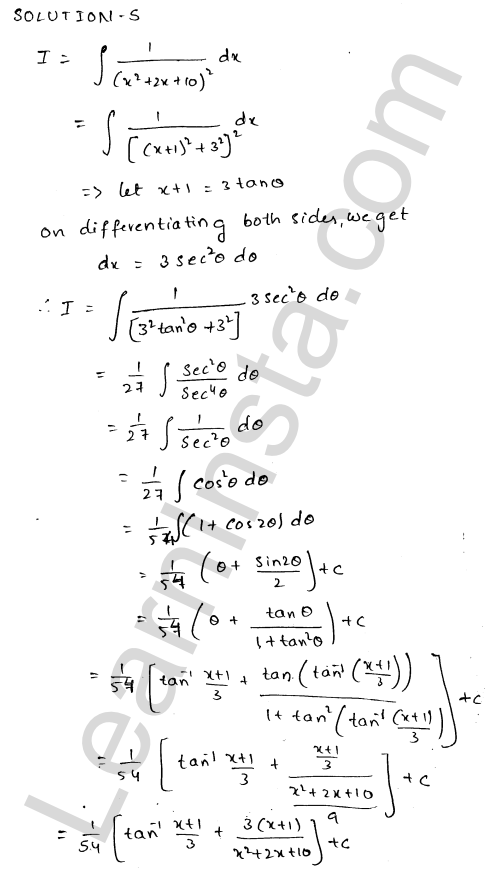 SOLUTION-5
I = ∫ 1/(x²+2x+10)² dx
= ∫ 1/[(x+1)²+3²]² dx
=> let x+1 = 3 tanθ
on differentiating both sides, we get
dx = 3 sec²θ dθ
∴ I = ∫ 1/[3²tan²θ+3²] 3 sec²θ dθ
= 1/27 ∫ sec²θ/sec⁴θ dθ
= 1/27 ∫ 1/sec²θ dθ
= 1/27 ∫ cos²θ dθ
= 1/54 ∫(1+cos2θ) dθ
= 1/54 (θ + sin2θ/2) + c
= 1/54 (θ + tanθ/1+tan²θ) + c
= 1/54 [tan⁻¹ x+1/3 + tan(tan⁻¹(x+1/3))/1+tan²(tan⁻¹(x+1)/3)] + c
= 1/54 [tan⁻¹ x+1/3 + x+1/3/x²+2x+10/9] + c
= 1/54 [tan⁻¹ x+1/3 + 3(x+1)/x²+2x+10] + c
LearnInsta.com